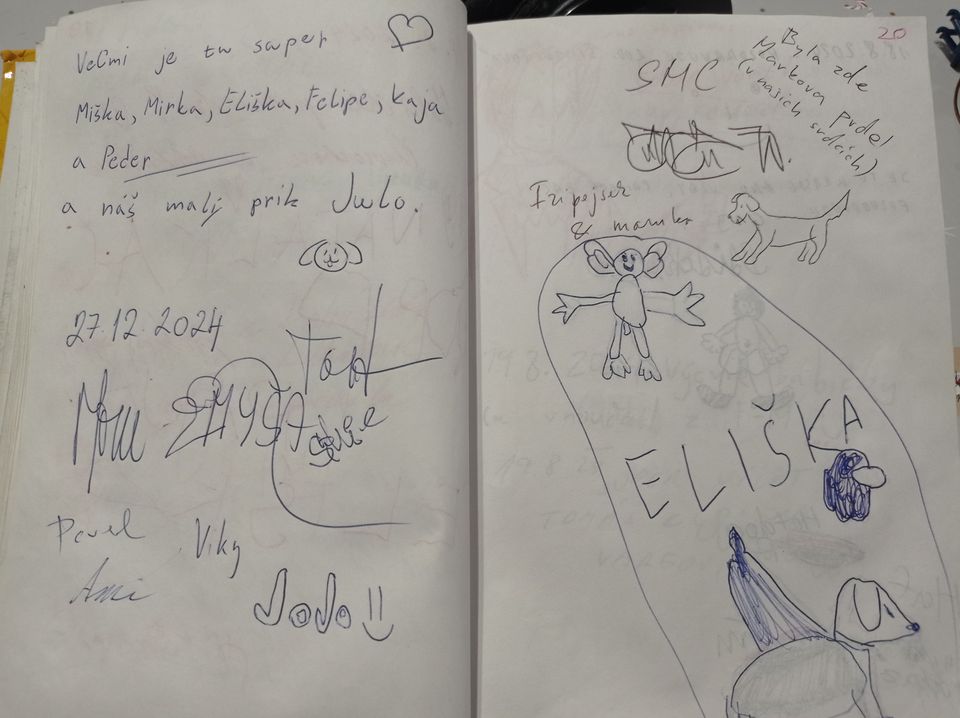 Veľmi je tu super
Miška, Mirka, Eliška, Felipe, Kaja
a Peder
a náš malý prik Julo.
27.12.2024
Pavel
Viky
Ami
JoJo!!
20
Byla zde
Markova prdel
(v našich srdcích)
SMC
&
ELIŠKA